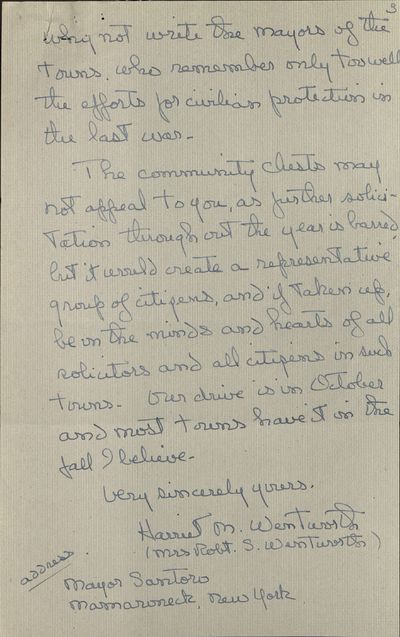 3
why not write the mayors of the
towns, who remember only too well
the efforts for civilian protection in
the last war -
The community chests may
not appeal to you, as further solici-
tation through out the year is barred,
but it would create a representative
group of citizens, and if taken up,
be in the minds and hearts of all
solicitors and all citizens in such
towns - Our drive is in October
and most towns have it in the
fall I believe -
Very sincerely yours,
Harriet M. Wentworth
(Mrs Robt. S. Wentworth)
address
Mayor Santoro
Mamaroneck, New York